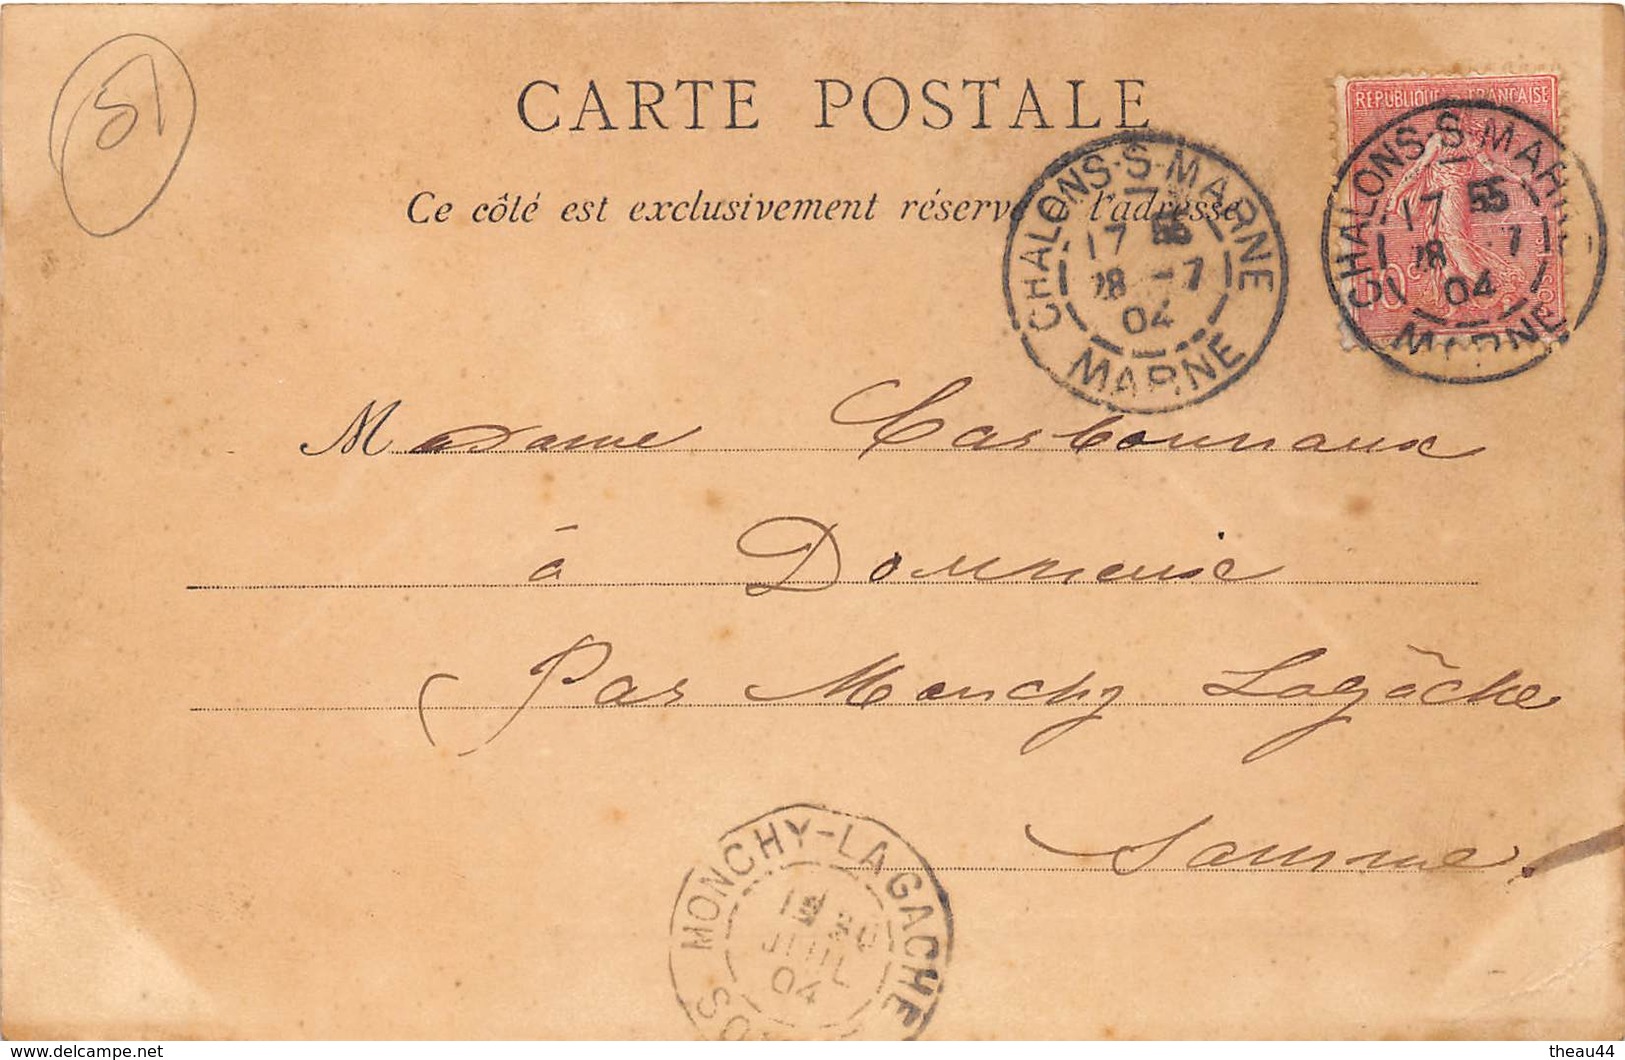 51
CARTE POSTALE
Ce côté est exclusivement réservé à l'adresse
REPUBLIQUE FRANÇAISE
10c
CHALONS-S-MARNE
17 55
28 -7
04
MARNE
CHALONS-S-MARNE
17 55
28 7
04
MARNE
Madame Carbonnaux
à
Par Monchy Lagâche
Somme
MONCHY-LAGACHE
JUIL
04
theau44